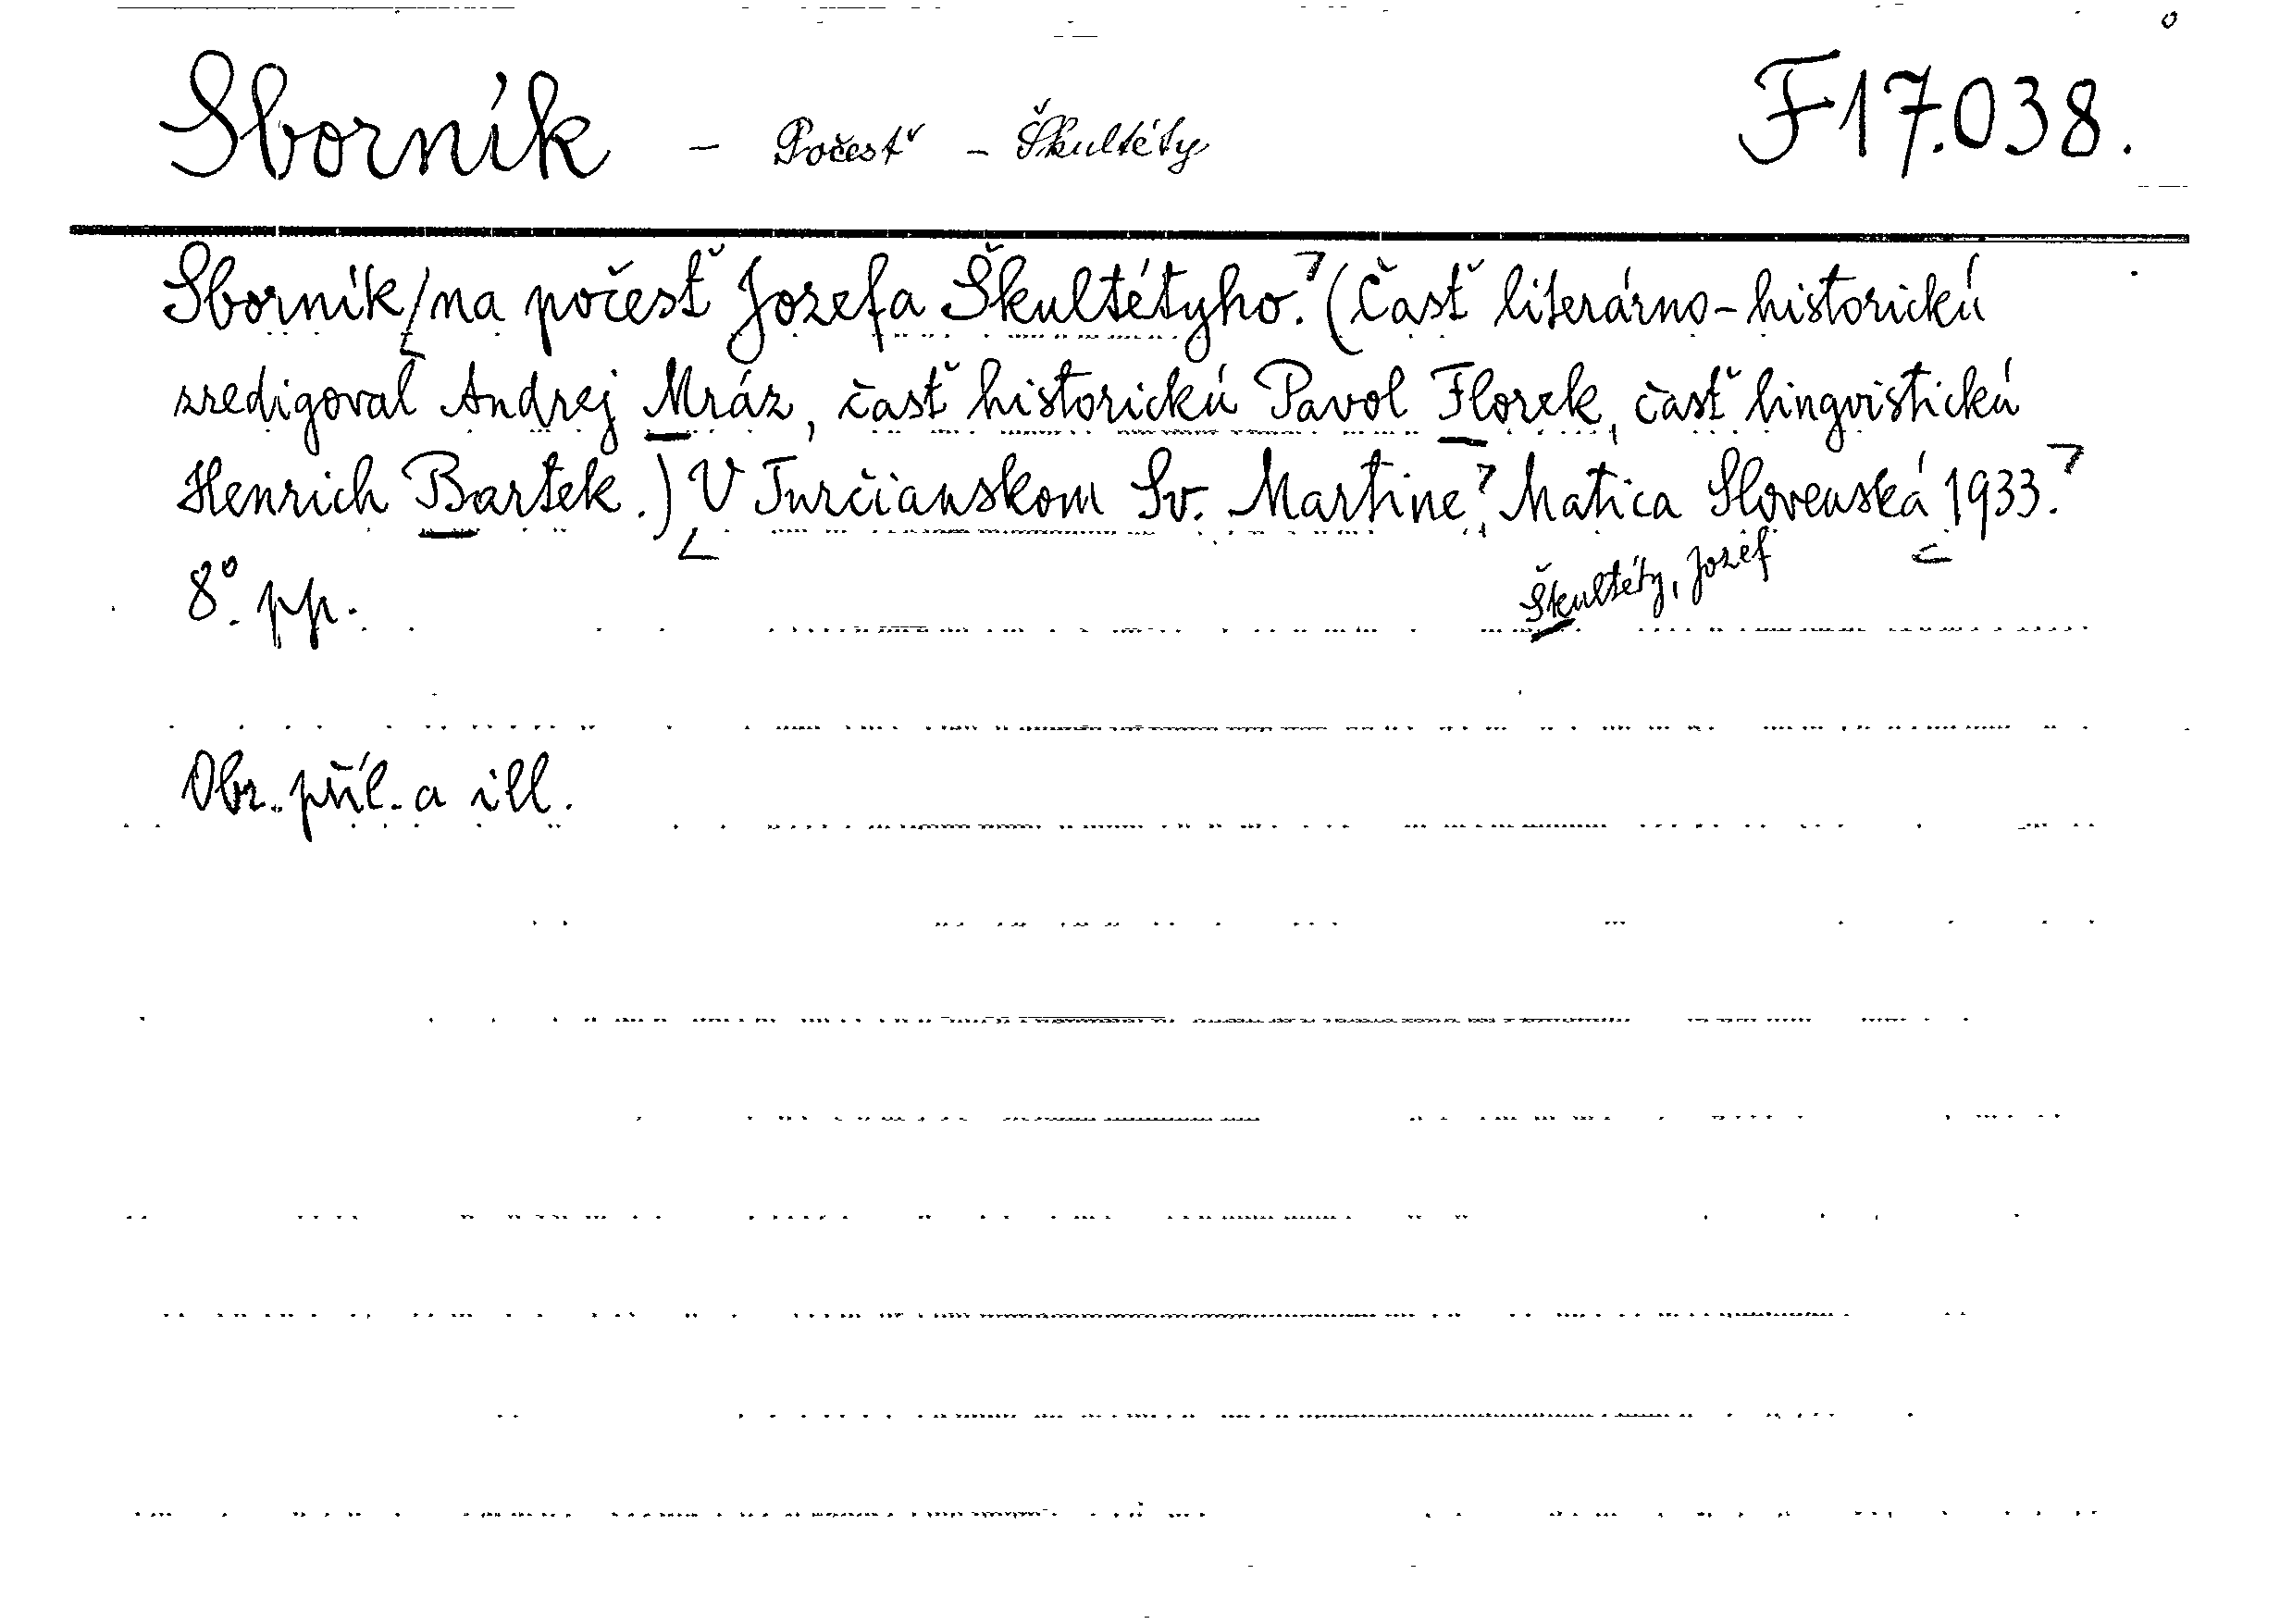 Sborník - Počesť - Škultéty F 17.038.
Sborník/na počesť Jozefa Škultétyho. (Časť literárno-historickú
zredigoval Andrej Mráz, časť historickú Pavol Florek, časť lingvistickú
Henrich Bartek.) V Turčianskom Sv. Martine, Matica Slovenská 1933.
8°. pp.
Škultéty, Jozef
Obr. příl. a ill.